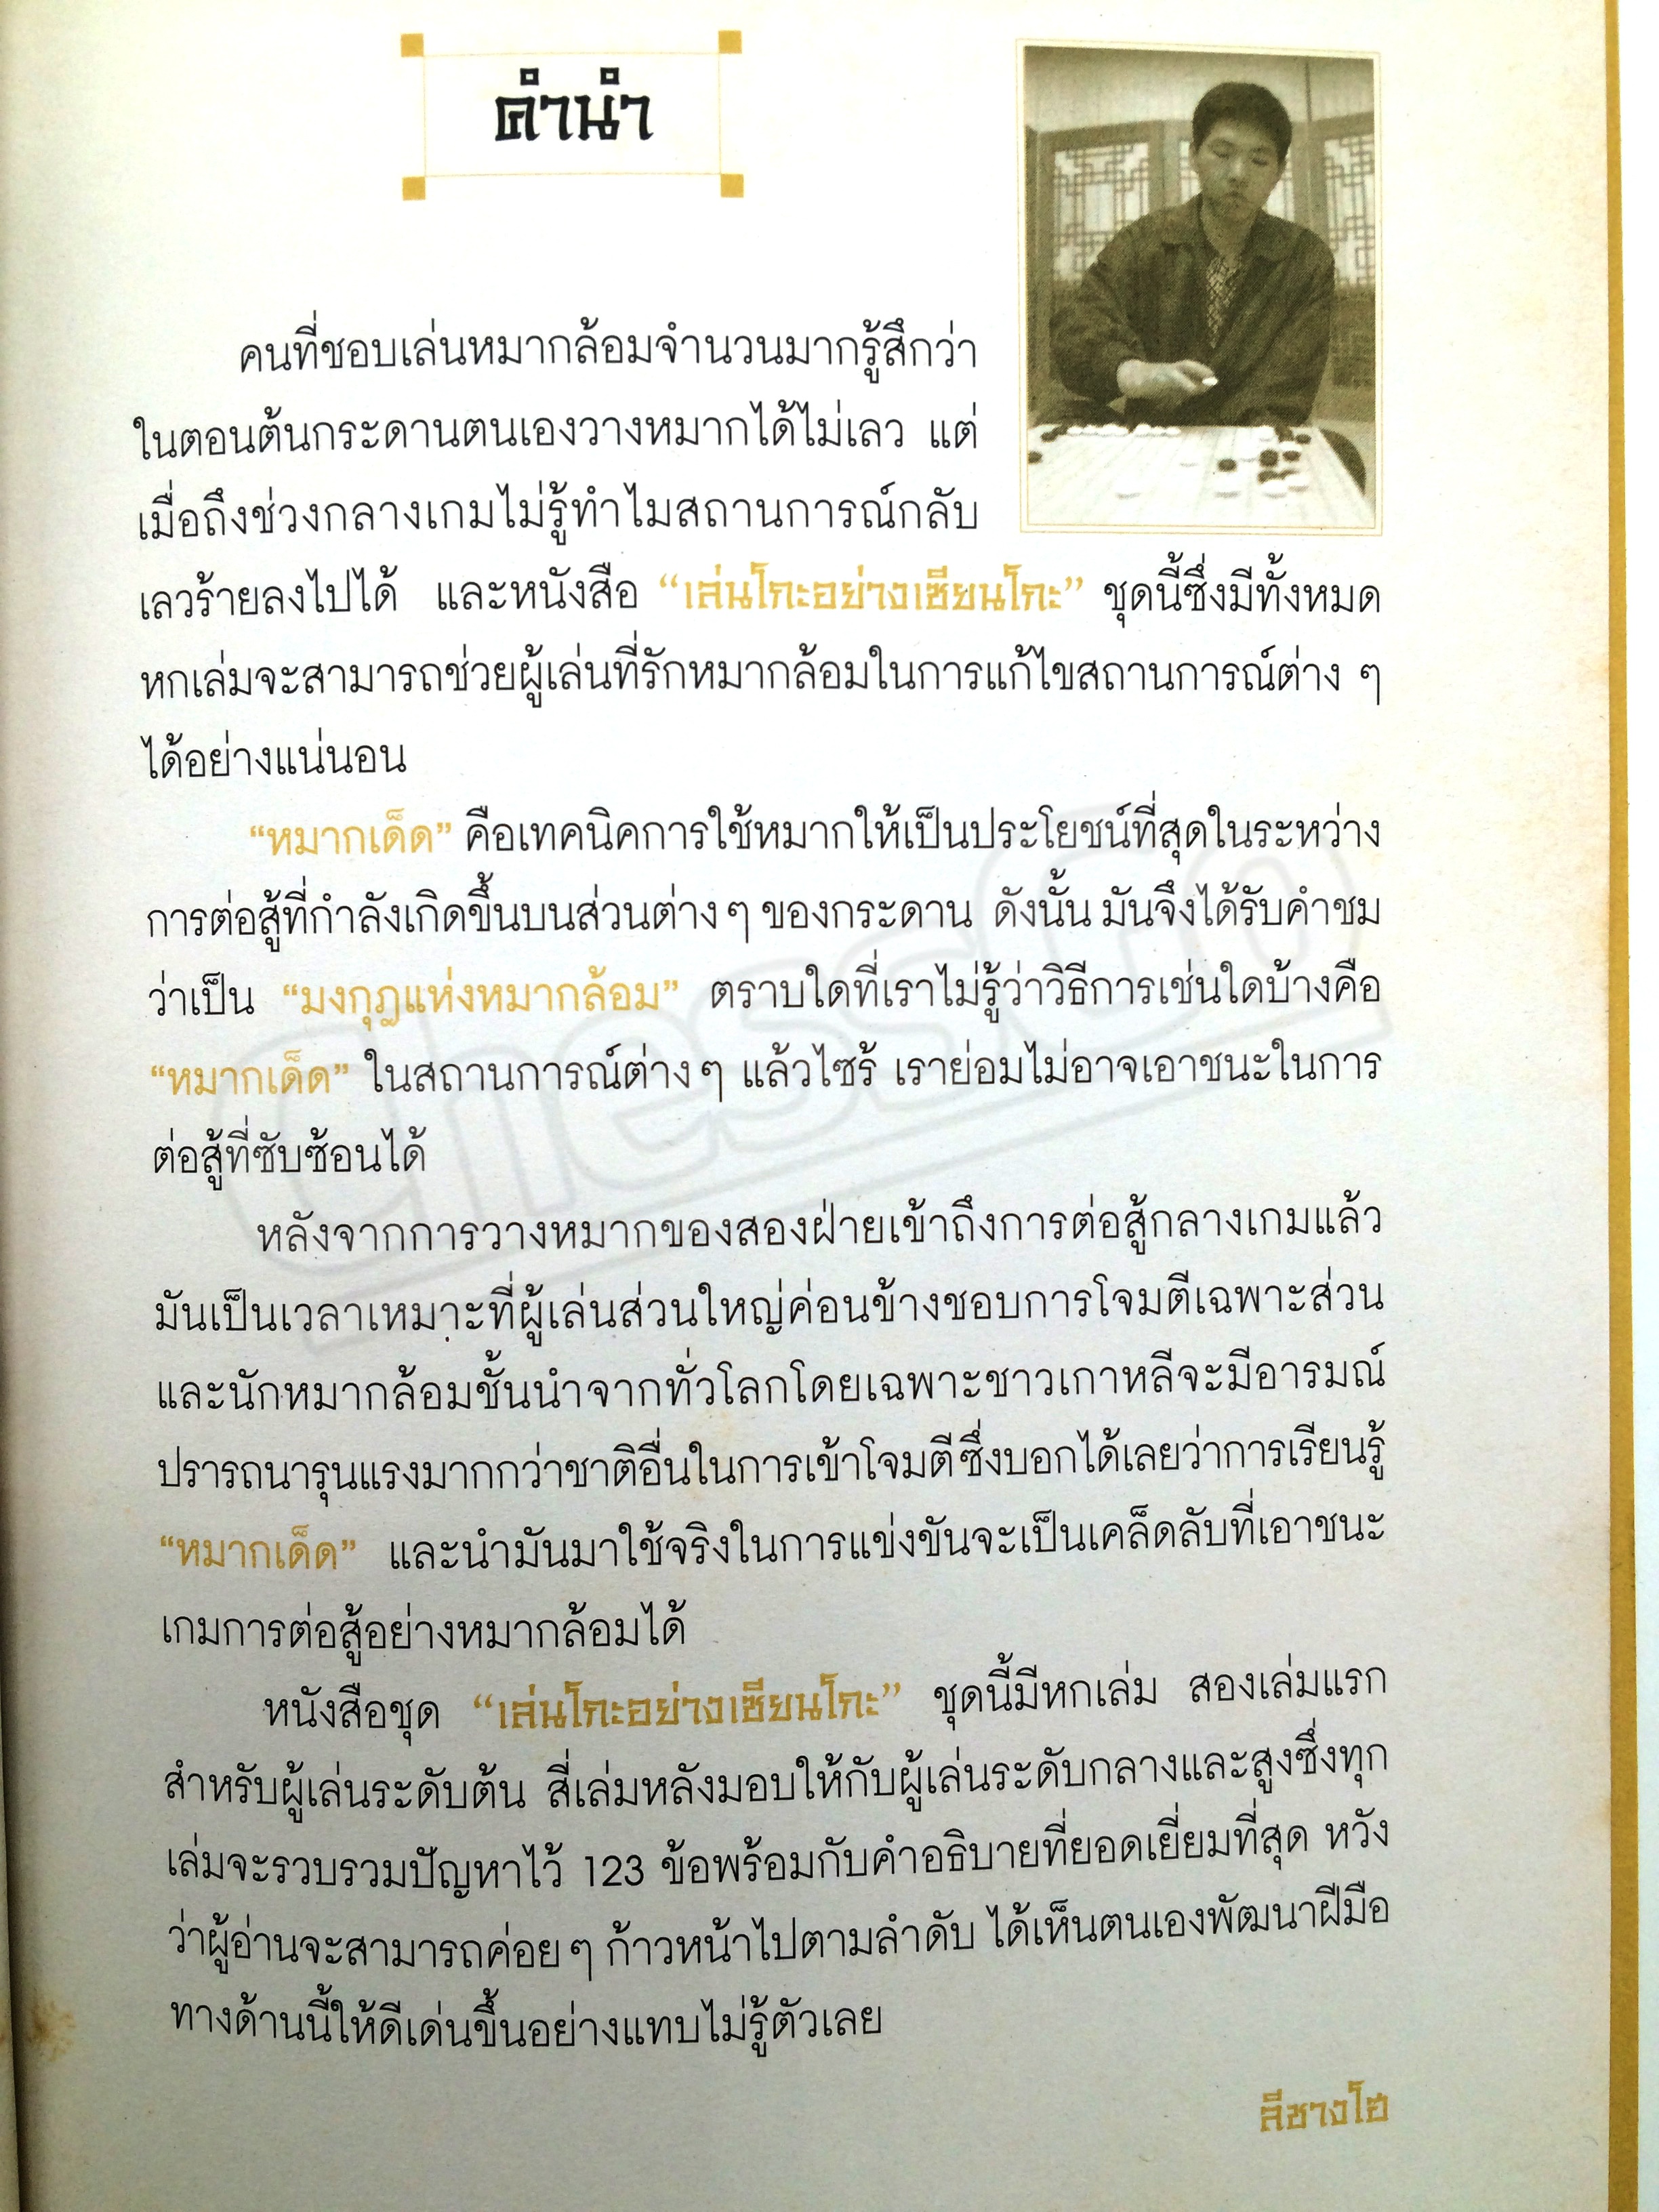 คำนำ
คนที่ชอบเล่นหมากล้อมจำนวนมากรู้สึกว่า
ในตอนต้นกระดานตนเองวางหมากได้ไม่เลว แต่
เมื่อถึงช่วงกลางเกมไม่รู้ทำไมสถานการณ์กลับ
เลวร้ายลงไปได้ และหนังสือ “เล่นโกะอย่างเซียนโกะ” ชุดนี้ซึ่งมีทั้งหมด
หกเล่มจะสามารถช่วยผู้เล่นที่รักหมากล้อมในการแก้ไขสถานการณ์ต่าง ๆ
ได้อย่างแน่นอน
“หมากเด็ด” คือเทคนิคการใช้หมากให้เป็นประโยชน์ที่สุดในระหว่าง
การต่อสู้ที่กำลังเกิดขึ้นบนส่วนต่าง ๆ ของกระดาน ดังนั้น มันจึงได้รับคำชม
ว่าเป็น “มงกุฎแห่งหมากล้อม” ตราบใดที่เราไม่รู้ว่าวิธีการเช่นใดบ้างคือ
“หมากเด็ด” ในสถานการณ์ต่าง ๆ แล้วไซร้ เราย่อมไม่อาจเอาชนะในการ
ต่อสู้ที่ซับซ้อนได้
หลังจากการวางหมากของสองฝ่ายเข้าถึงการต่อสู้กลางเกมแล้ว
มันเป็นเวลาเหมาะที่ผู้เล่นส่วนใหญ่ค่อนข้างชอบการโจมตีเฉพาะส่วน
และนักหมากล้อมชั้นนำจากทั่วโลกโดยเฉพาะชาวเกาหลีจะมีอารมณ์
ปรารถนารุนแรงมากกว่าชาติอื่นในการเข้าโจมตีซึ่งบอกได้เลยว่าการเรียนรู้
“หมากเด็ด” และนำมันมาใช้จริงในการแข่งขันจะเป็นเคล็ดลับที่เอาชนะ
เกมการต่อสู้อย่างหมากล้อมได้
หนังสือชุด “เล่นโกะอย่างเซียนโกะ” ชุดนี้มีหกเล่ม สองเล่มแรก
สำหรับผู้เล่นระดับต้น สี่เล่มหลังมอบให้กับผู้เล่นระดับกลางและสูงซึ่งทุก
เล่มจะรวบรวมปัญหาไว้ 123 ข้อพร้อมกับคำอธิบายที่ยอดเยี่ยมที่สุด หวัง
ว่าผู้อ่านจะสามารถค่อย ๆ ก้าวหน้าไปตามลำดับ ได้เห็นตนเองพัฒนาฝีมือ
ทางด้านนี้ให้ดีเด่นขึ้นอย่างแทบไม่รู้ตัวเลย
ลีชางโฮ
ChessCo